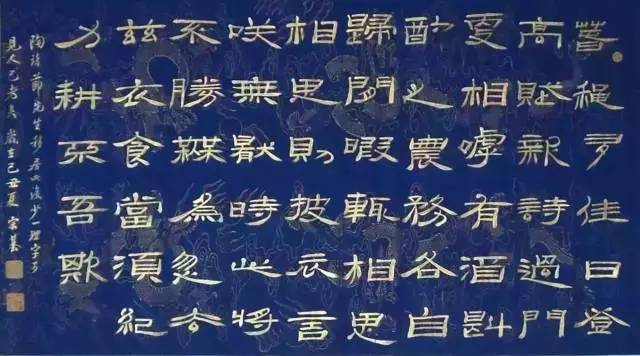 萅穐多佳日登
高賦新詩過門
更相嘑有酒斟
酌之農務各自
歸閒暇輒相思
相思則披衣言
咲無厭時此將
不勝無為忽去
茲衣食當須紀
力耕不吾欺
陶靖節先生移居少一理字
見人已老矣歲在己丑夏